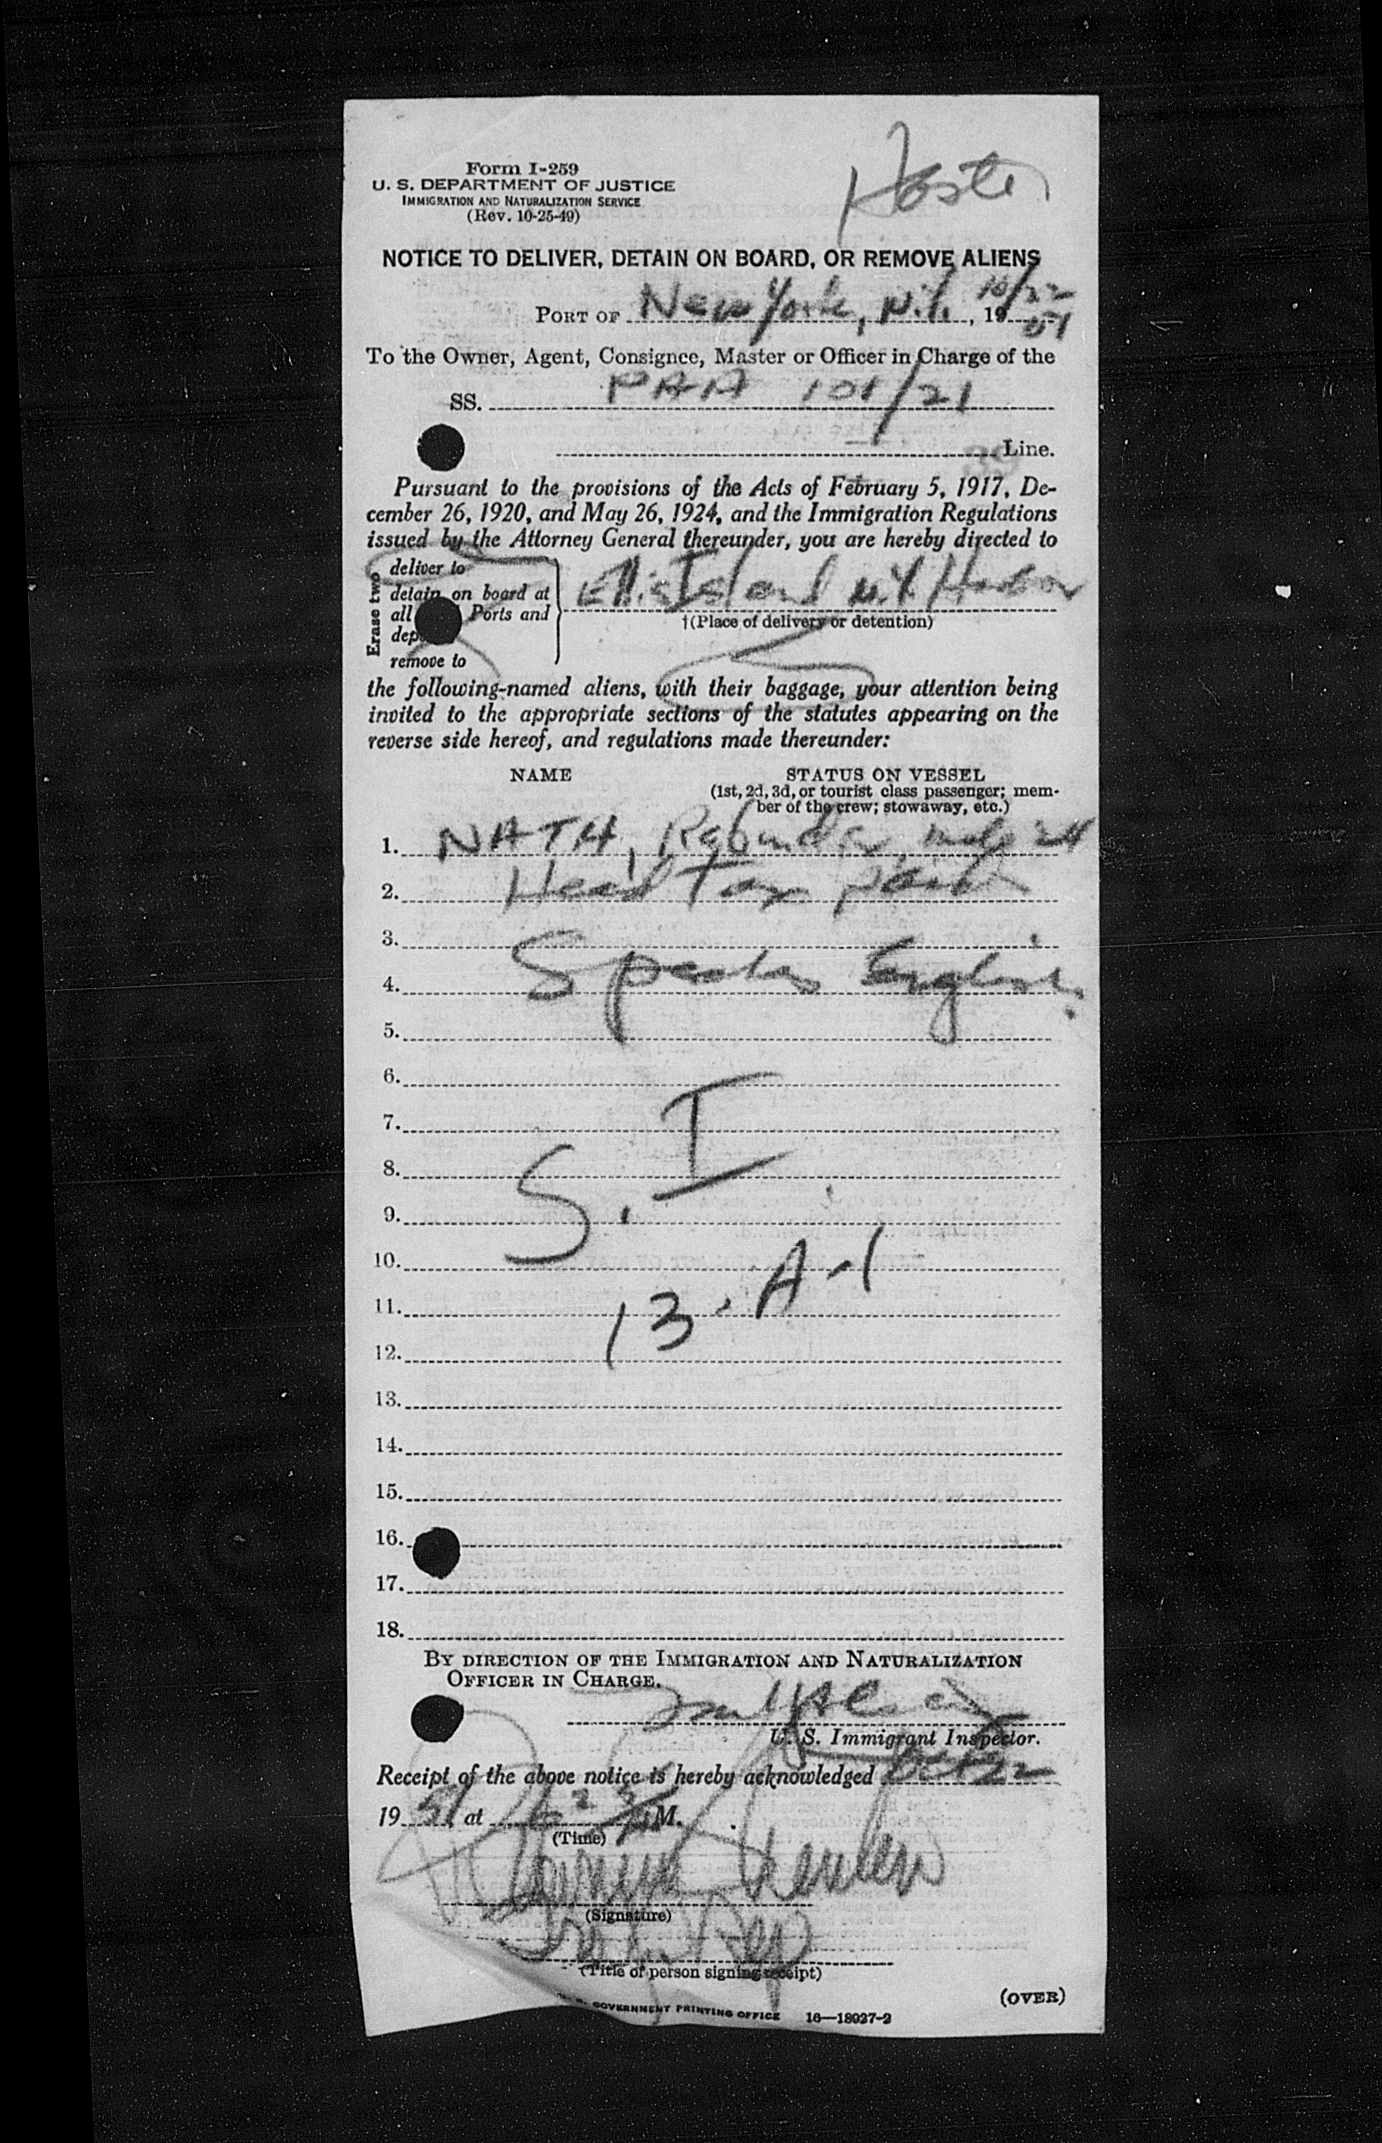 Form I-259
U. S. DEPARTMENT OF JUSTICE
IMMIGRATION AND NATURALIZATION SERVICE
(Rev. 10-25-49)
NOTICE TO DELIVER, DETAIN ON BOARD, OR REMOVE ALIENS
PORT OF New York, N.Y. 10/22, 19 51
To the Owner, Agent, Consignee, Master or Officer in Charge of the
SS. PAA 101/21
Line.
39
Pursuant to the provisions of the Acts of February 5, 1917, De-
cember 26, 1920, and May 26, 1924, and the Immigration Regulations
issued by the Attorney General thereunder, you are hereby directed to
Erase two
deliver to
detain on board at
all Ports and
dep
remove to
Ellis Island N.Y. Harbor
†(Place of delivery or detention)
the following-named aliens, with their baggage, your attention being
invited to the appropriate sections of the statutes appearing on the
reverse side hereof, and regulations made thereunder:
NAME STATUS ON VESSEL
(1st, 2d, 3d, or tourist class passenger; mem-
ber of the crew; stowaway, etc.)
1. NATH, Rabindra, male 24
2. Head Tax paid
3.
4. Speaks English.
5.
6.
7.
8. S. I
9.
10.
11. 13. A-1
12.
13.
14.
15.
16.
17.
18.
BY DIRECTION OF THE IMMIGRATION AND NATURALIZATION
OFFICER IN CHARGE.
U. S. Immigrant Inspector.
Receipt of the above notice is hereby acknowledged Oct 22
19 51 at M.
(Time)
(Signature)
Rep
(Title of person signing receipt)
GOVERNMENT PRINTING OFFICE 16—18027-2
(OVER)